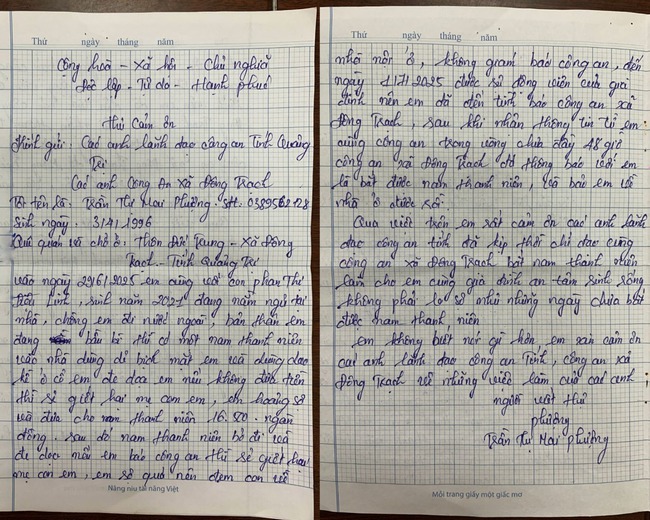 Thứ ngày tháng năm
Cộng hoà - Xã hội - Chủ nghĩa
Độc lập - Tự do - Hạnh phúc
Thư Cảm ơn
Kính gửi: Các anh lãnh đạo công an Tỉnh Quảng
Trị
Các anh Công An Xã Đông Trạch
Tôi tên là: Trần Thị Mai Phương. Sđt:
Sinh ngày. 3/4/1996
Quê quán và chỗ ở: Thôn Đức Trung - Xã Đông
Trạch - Tỉnh Quảng Trị
vào ngày 29/6/2025 em cùng với con phan Thị
Linh, sinh năm 2021 đang nằm ngủ tại
nhà, chồng em đi nước ngoài, bản thân em
đang bầu bí thì có một nam thanh niên
vào nhà dùng dẻ bịch mặt em và dùng dao
kề ở cổ em, đe doạ em nếu không đưa tiền
thì sẽ giết hai mẹ con em, em hoảng sợ
và đưa cho nam thanh niên 16.520. ngàn
đồng. sau đó nam thanh niên bỏ đi và
đe doạ nếu em báo công an thì sẽ giết hai
mẹ con em, em sợ quá nên đem con về
Nâng niu tài năng Việt
Thứ ngày tháng năm
nhà nội ở, không giám báo công an, đến
ngày 1/7/2025 được sự động viên của gia
đình nên em đã đến trình báo công an xã
Đông Trạch, sau khi nhận thông tin từ em
cùng công an trong vòng chưa đầy 48 giờ
công an xã Đông Trạch đã thông báo với em
là bắt được nam thanh niên, và bảo em về
nhà ở được rồi.
Qua việc trên em rất cảm ơn các anh lãnh
đạo công an tỉnh đã kịp thời chỉ đạo cùng
công an xã Đông Trạch bắt nam thanh niên
làm cho em cùng gia đình an tâm sinh sống
không phải lo sợ như những ngày chưa bắt
được nam thanh niên
em không biết nói gì hơn, em xin cảm ơn
các anh lãnh đạo công an Tỉnh, công an xã
Đông Trạch về những việc làm của các anh
người viết thư
phương
Trần Thị Mai Phương
Mỗi trang giấy một giấc mơ